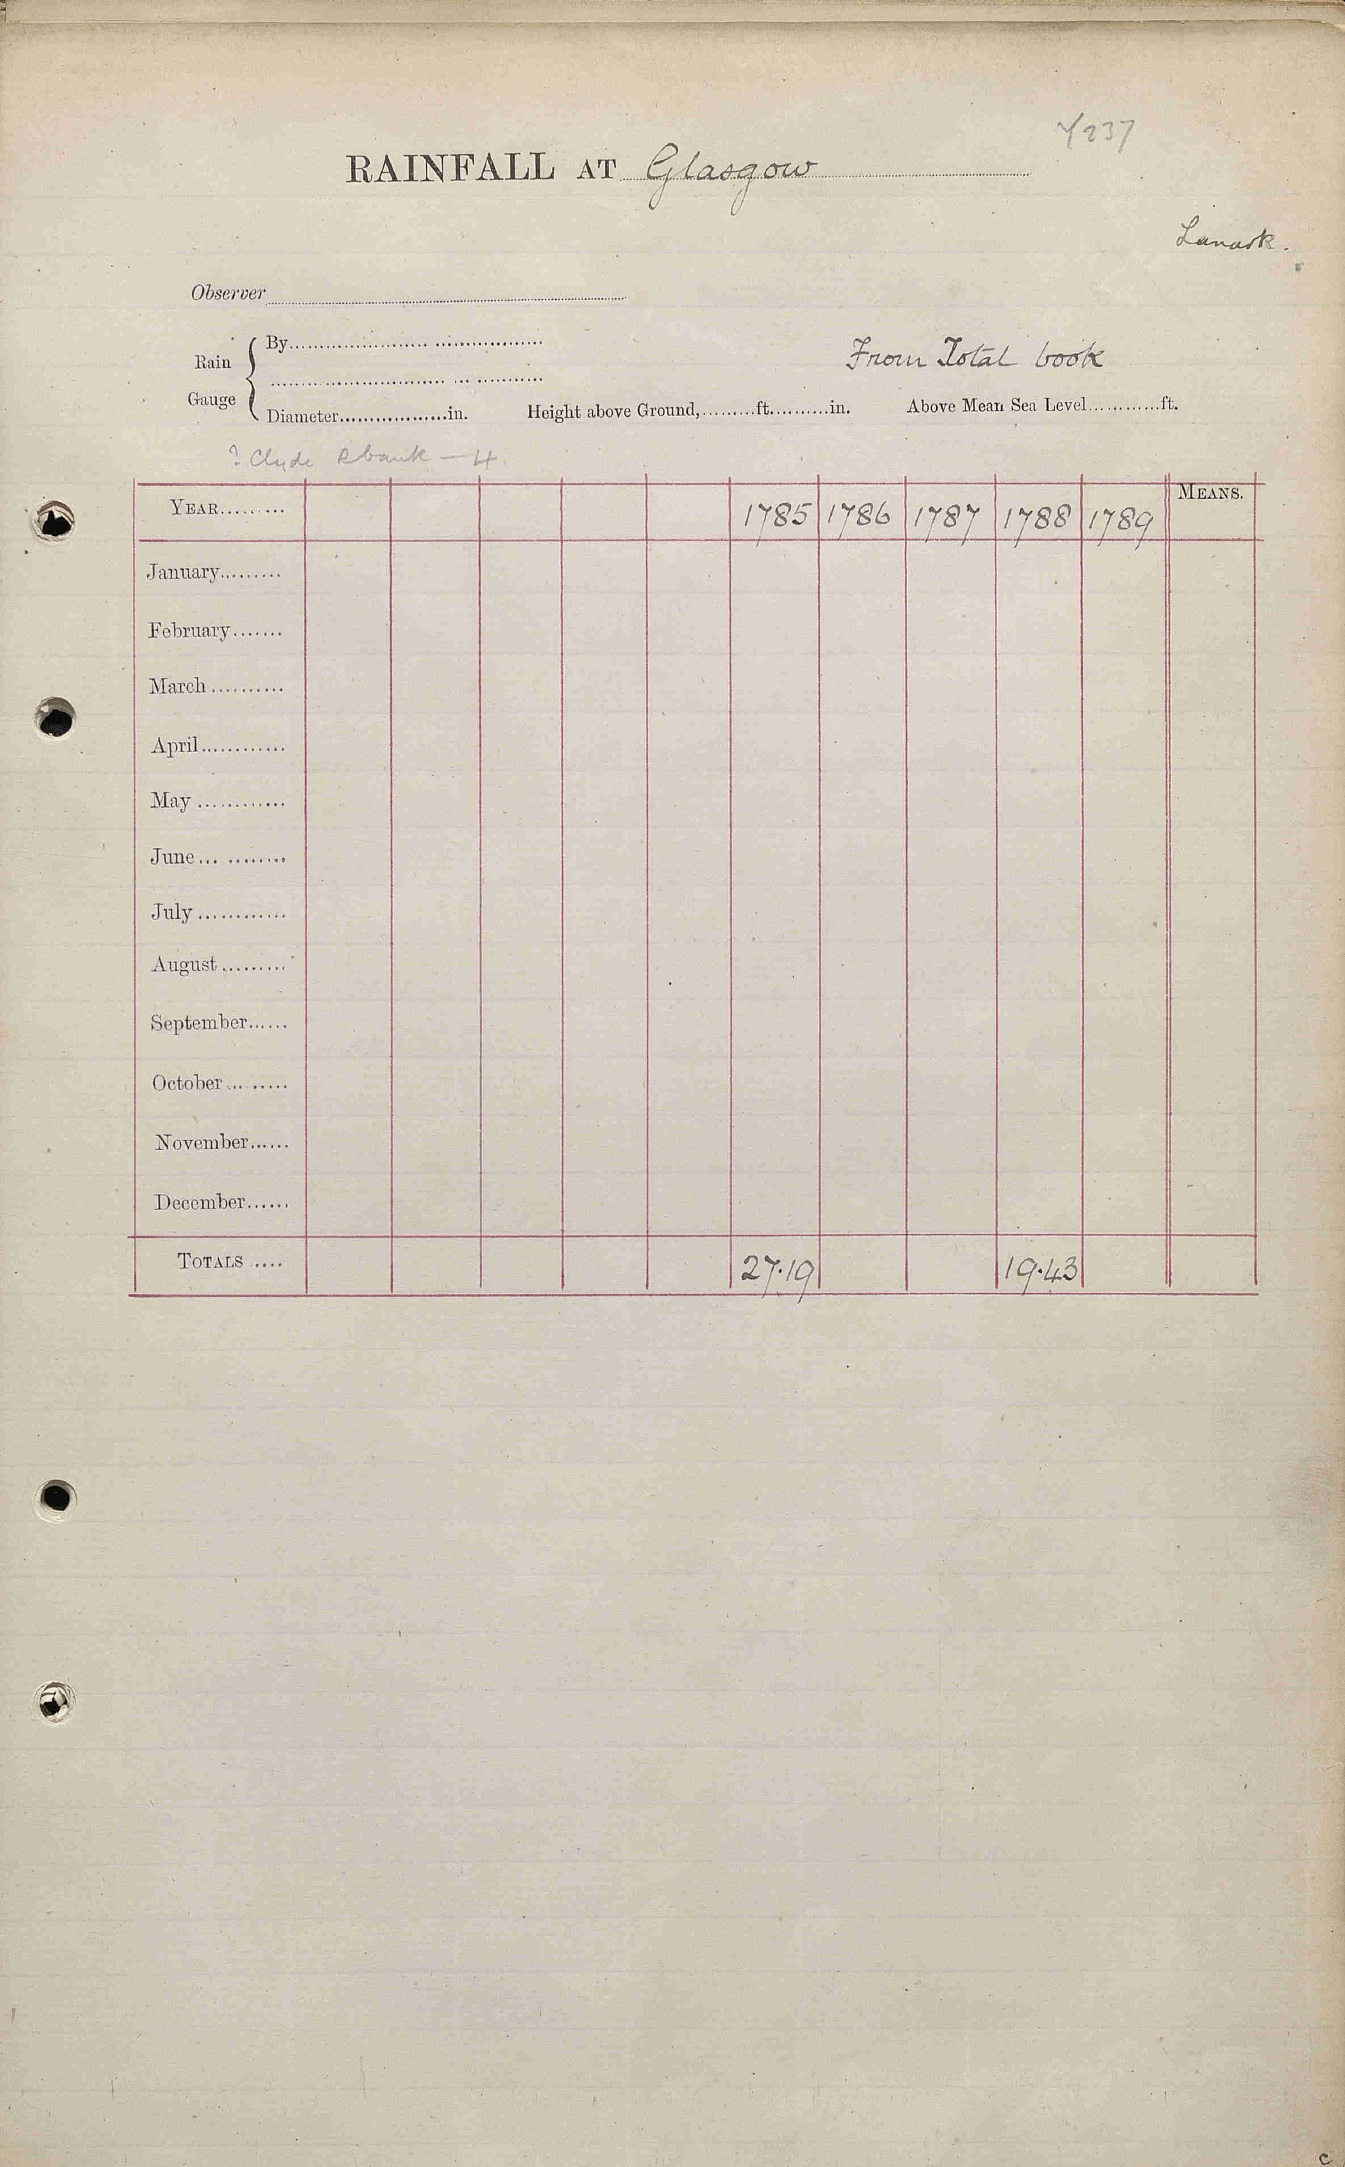 237
RAINFALL AT Glasgow
Lanark.
Observer
Rain Gauge
By
From Total book
Diameter in. Height above Ground, ft. in. Above Mean Sea Level ft.
? Clyde Rbank — 4.
YEAR 1785 1786 1787 1788 1789 MEANS.
January
February
March
April
May
June
July
August
September
October
November
December
TOTALS 27.19 19.43
c